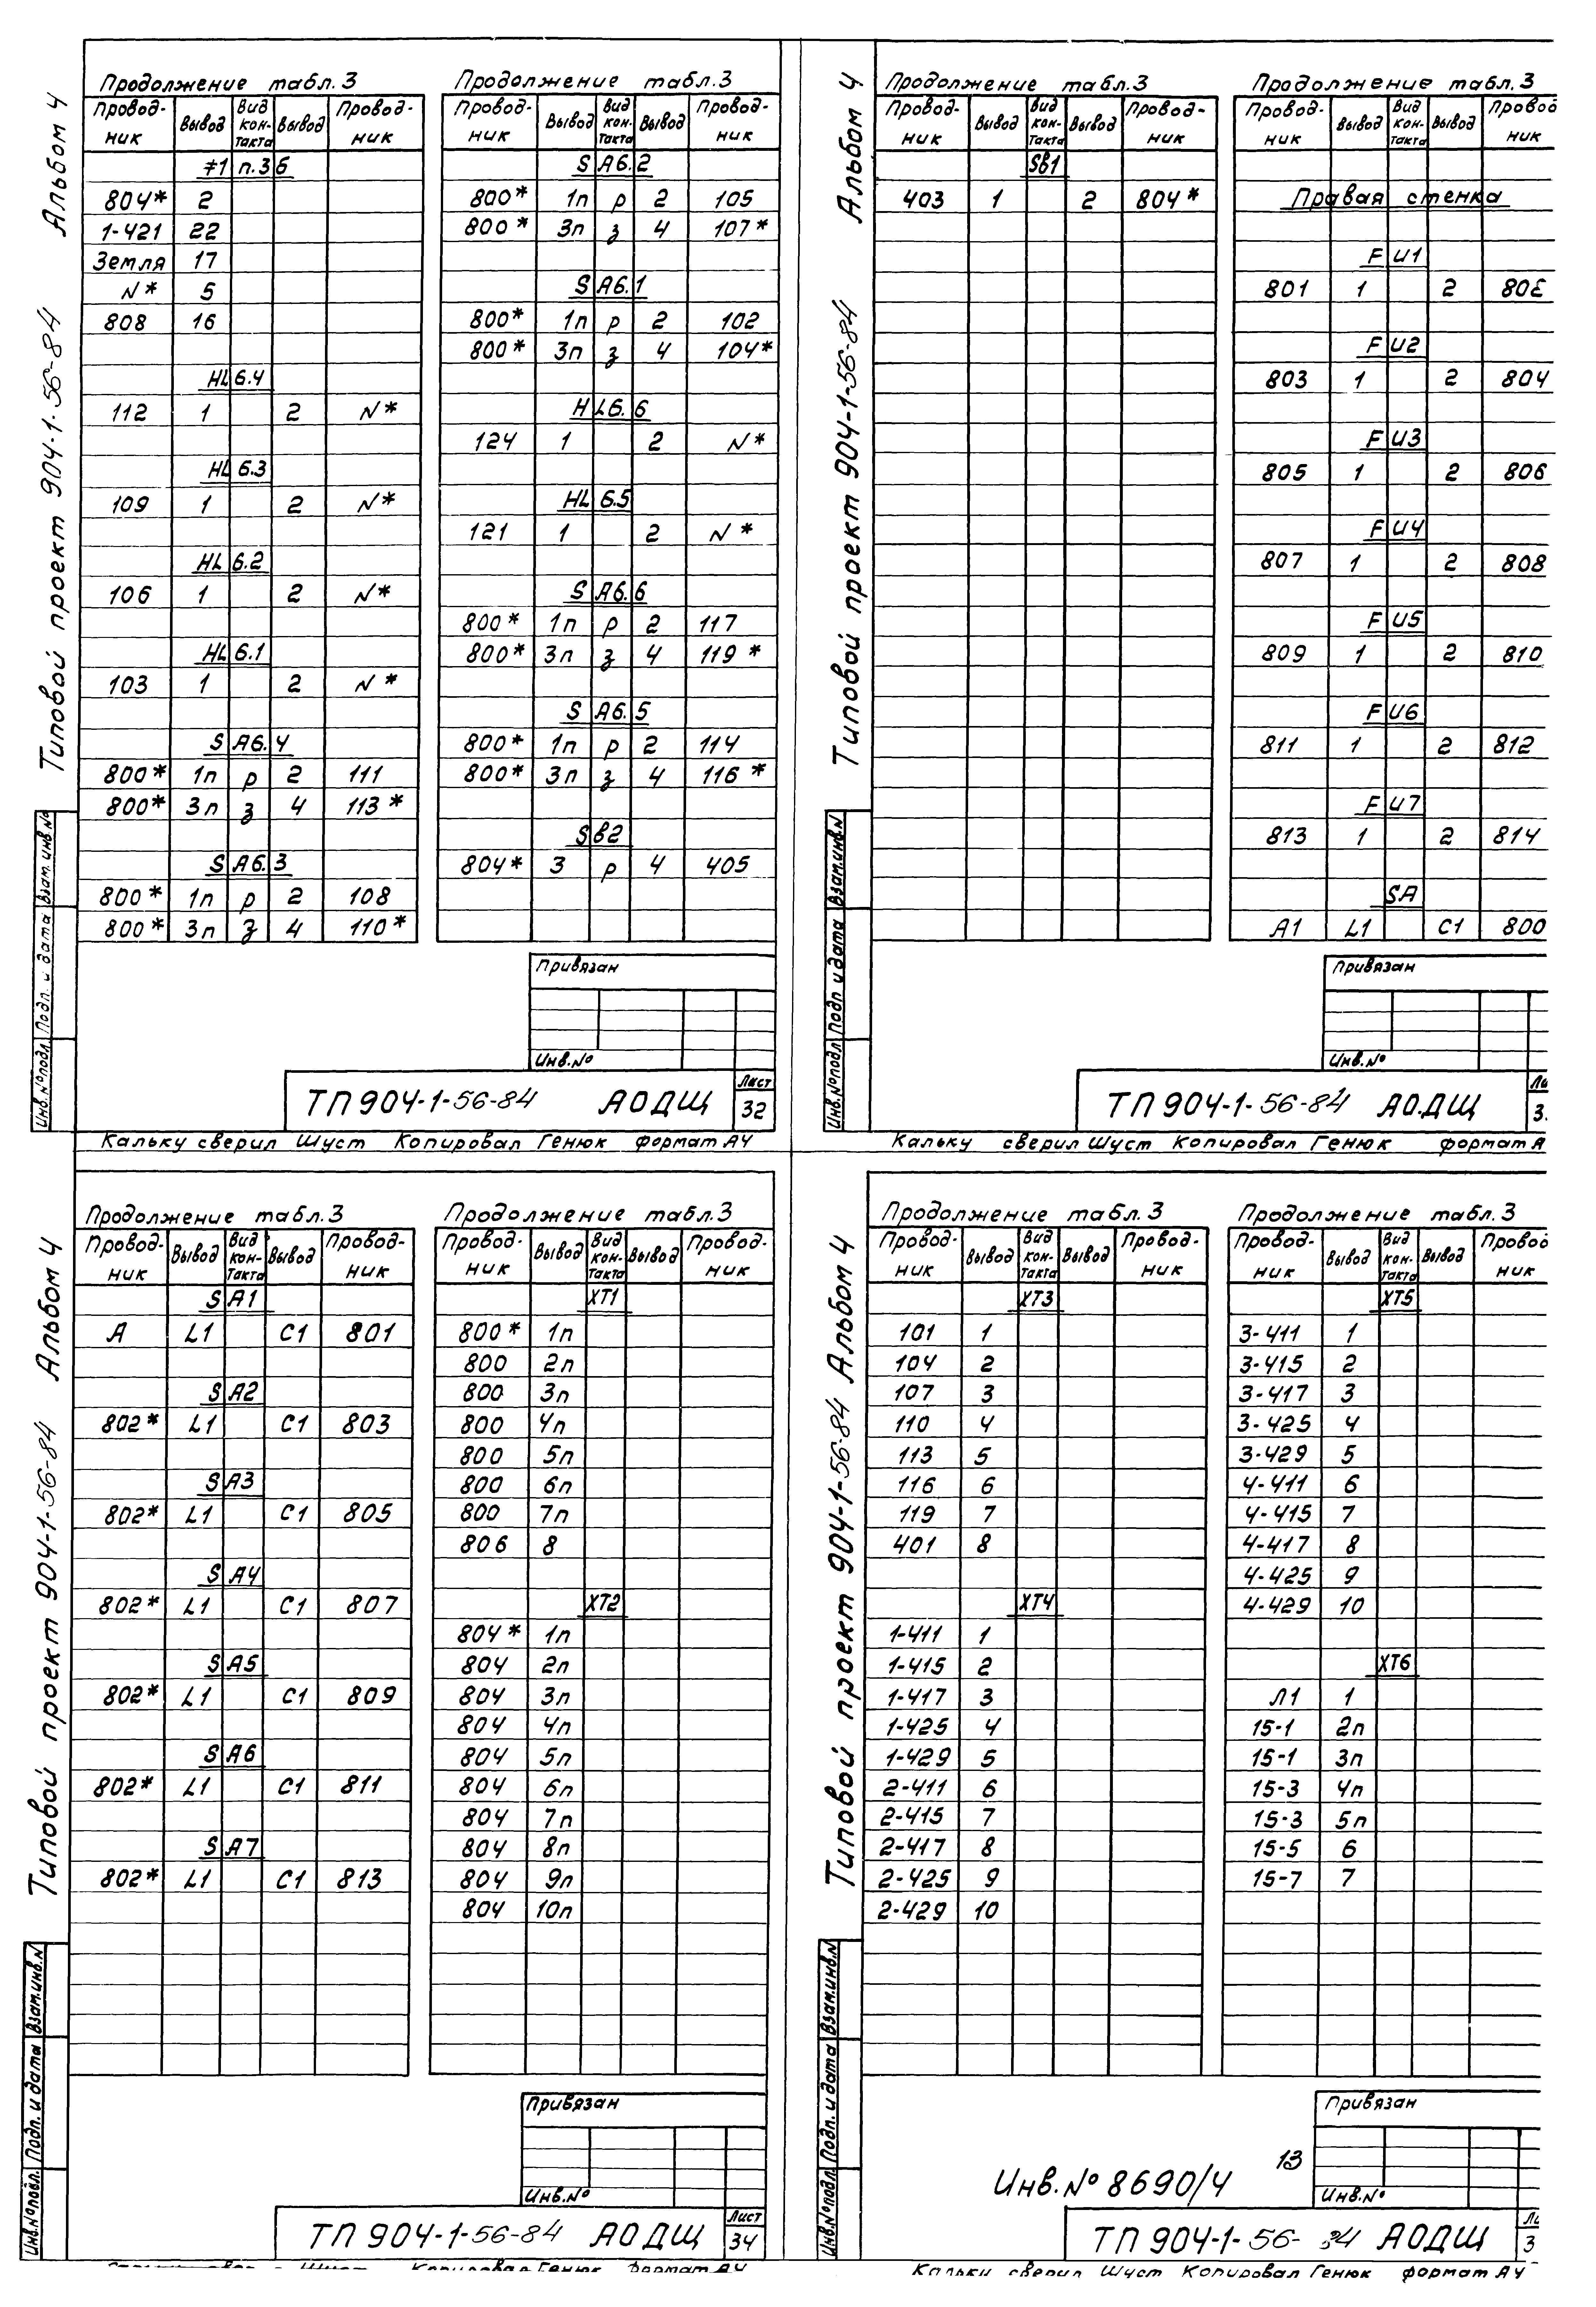 Альбом 4
Типовой проект 904-1-56-84
Взам. инв. №
Подп. и дата
Инв. № подл.
Продолжение табл.3
Провод-ник Вывод Вид кон-такта Вывод Провод-ник
≠1 п.3б
804* 2
1-421 22
Земля 17
N* 5
808 16
HL6.4
112 1 2 N*
HL6.3
109 1 2 N*
HL6.2
106 1 2 N*
HL6.1
103 1 2 N*
SA6.4
800* 1п р 2 111
800* 3п з 4 113*
SA6.3
800* 1п р 2 108
800* 3п з 4 110*
Продолжение табл.3
Провод-ник Вывод Вид кон-такта Вывод Провод-ник
SA6.2
800* 1п р 2 105
800* 3п з 4 107*
SA6.1
800* 1п р 2 102
800* 3п з 4 104*
HL6.6
124 1 2 N*
HL6.5
121 1 2 N*
SA6.6
800* 1п р 2 117
800* 3п з 4 119*
SA6.5
800* 1п р 2 114
800* 3п з 4 116*
SB2
804* 3 р 4 405
Привязан
Инв.№
ТП 904-1-56-84 АОДЩ
Лист
32
Кальку сверил Шуст Копировал Генюк формат А4
Альбом 4
Типовой проект 904-1-56-84
Взам.инв.N
Подп и дата
Инв.№ подл
Продолжение табл.3
Провод-ник Вывод Вид кон-такта Вывод Провод-ник
SB1
403 1 2 804*
Продолжение табл.3
Провод-ник Вывод Вид кон-такта Вывод Провод ник
Правая стенка
FU1
801 1 2
FU2
803 1 2 804
FU3
805 1 2 806
FU4
807 1 2 808
FU5
809 1 2 810
FU6
811 1 2 812
FU7
813 1 2 814
SA
A1 L1 C1 800
Привязан
Инв.№
ТП 904-1-56-84 АОДЩ
Ли
3
Кальку сверил Шуст Копировал Генюк формат А
Альбом 4
Типовой проект 904-1-56-84
Взам.инв.N
Подп. и дата
Инв.№ подл.
Продолжение табл.3
Провод-ник Вывод Вид кон-такта Вывод Провод-ник
SA1
A L1 C1 801
SA2
802* L1 C1 803
SA3
802* L1 C1 805
SA4
802* L1 C1 807
SA5
802* L1 C1 809
SA6
802* L1 C1 811
SA7
802* L1 C1 813
Продолжение табл.3
Провод-ник Вывод Вид кон-такта Вывод Провод-ник
XT1
800* 1п
800 2п
800 3п
800 4п
800 5п
800 6п
800 7п
806 8
XT2
804* 1п
804 2п
804 3п
804 4п
804 5п
804 6п
804 7п
804 8п
804 9п
804 10п
Привязан
Инв.№
ТП 904-1-56-84 АОДЩ
Лист
34
Шуст Копировал Генюк формат А4
Альбом 4
Типовой проект 904-1-56-84
Взам.инв.N
Подп. и дата
Инв.№ подл.
Продолжение табл.3
Провод-ник Вывод Вид кон-такта Вывод Провод-ник
XT3
101 1
104 2
107 3
110 4
113 5
116 6
119 7
401 8
XT4
1-411 1
1-415 2
1-417 3
1-425 4
1-429 5
2-411 6
2-415 7
2-417 8
2-425 9
2-429 10
Продолжение табл.3
Провод-ник Вывод Вид кон-такта Вывод Провод ник
XT5
3-411 1
3-415 2
3-417 3
3-425 4
3-429 5
4-411 6
4-415 7
4-417 8
4-425 9
4-429 10
XT6
Л1 1
15-1 2п
15-1 3п
15-3 4п
15-3 5п
15-5 6
15-7 7
Привязан
Инв.№
13
Инв.№ 8690/4
ТП 904-1-56-84 АОДЩ
Ли
3
Кальку сверил Шуст Копировал Генюк формат А4